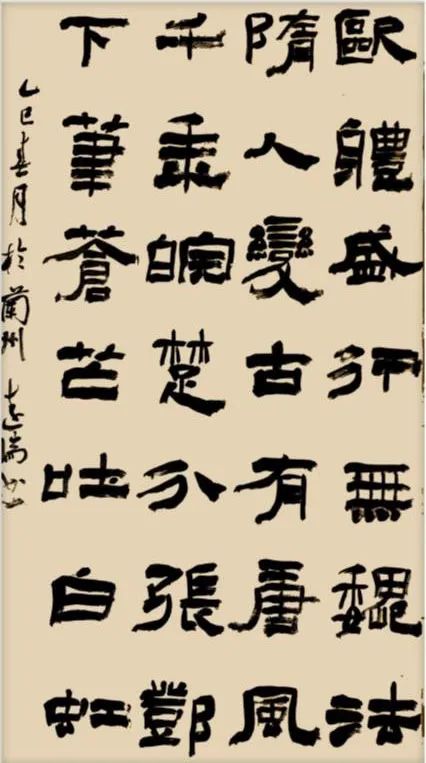 歐體盛行無魏法
隋人變古有唐風
千年皖楚分張鄧
下筆蒼芒吐白虹
乙巳春月於蘭州